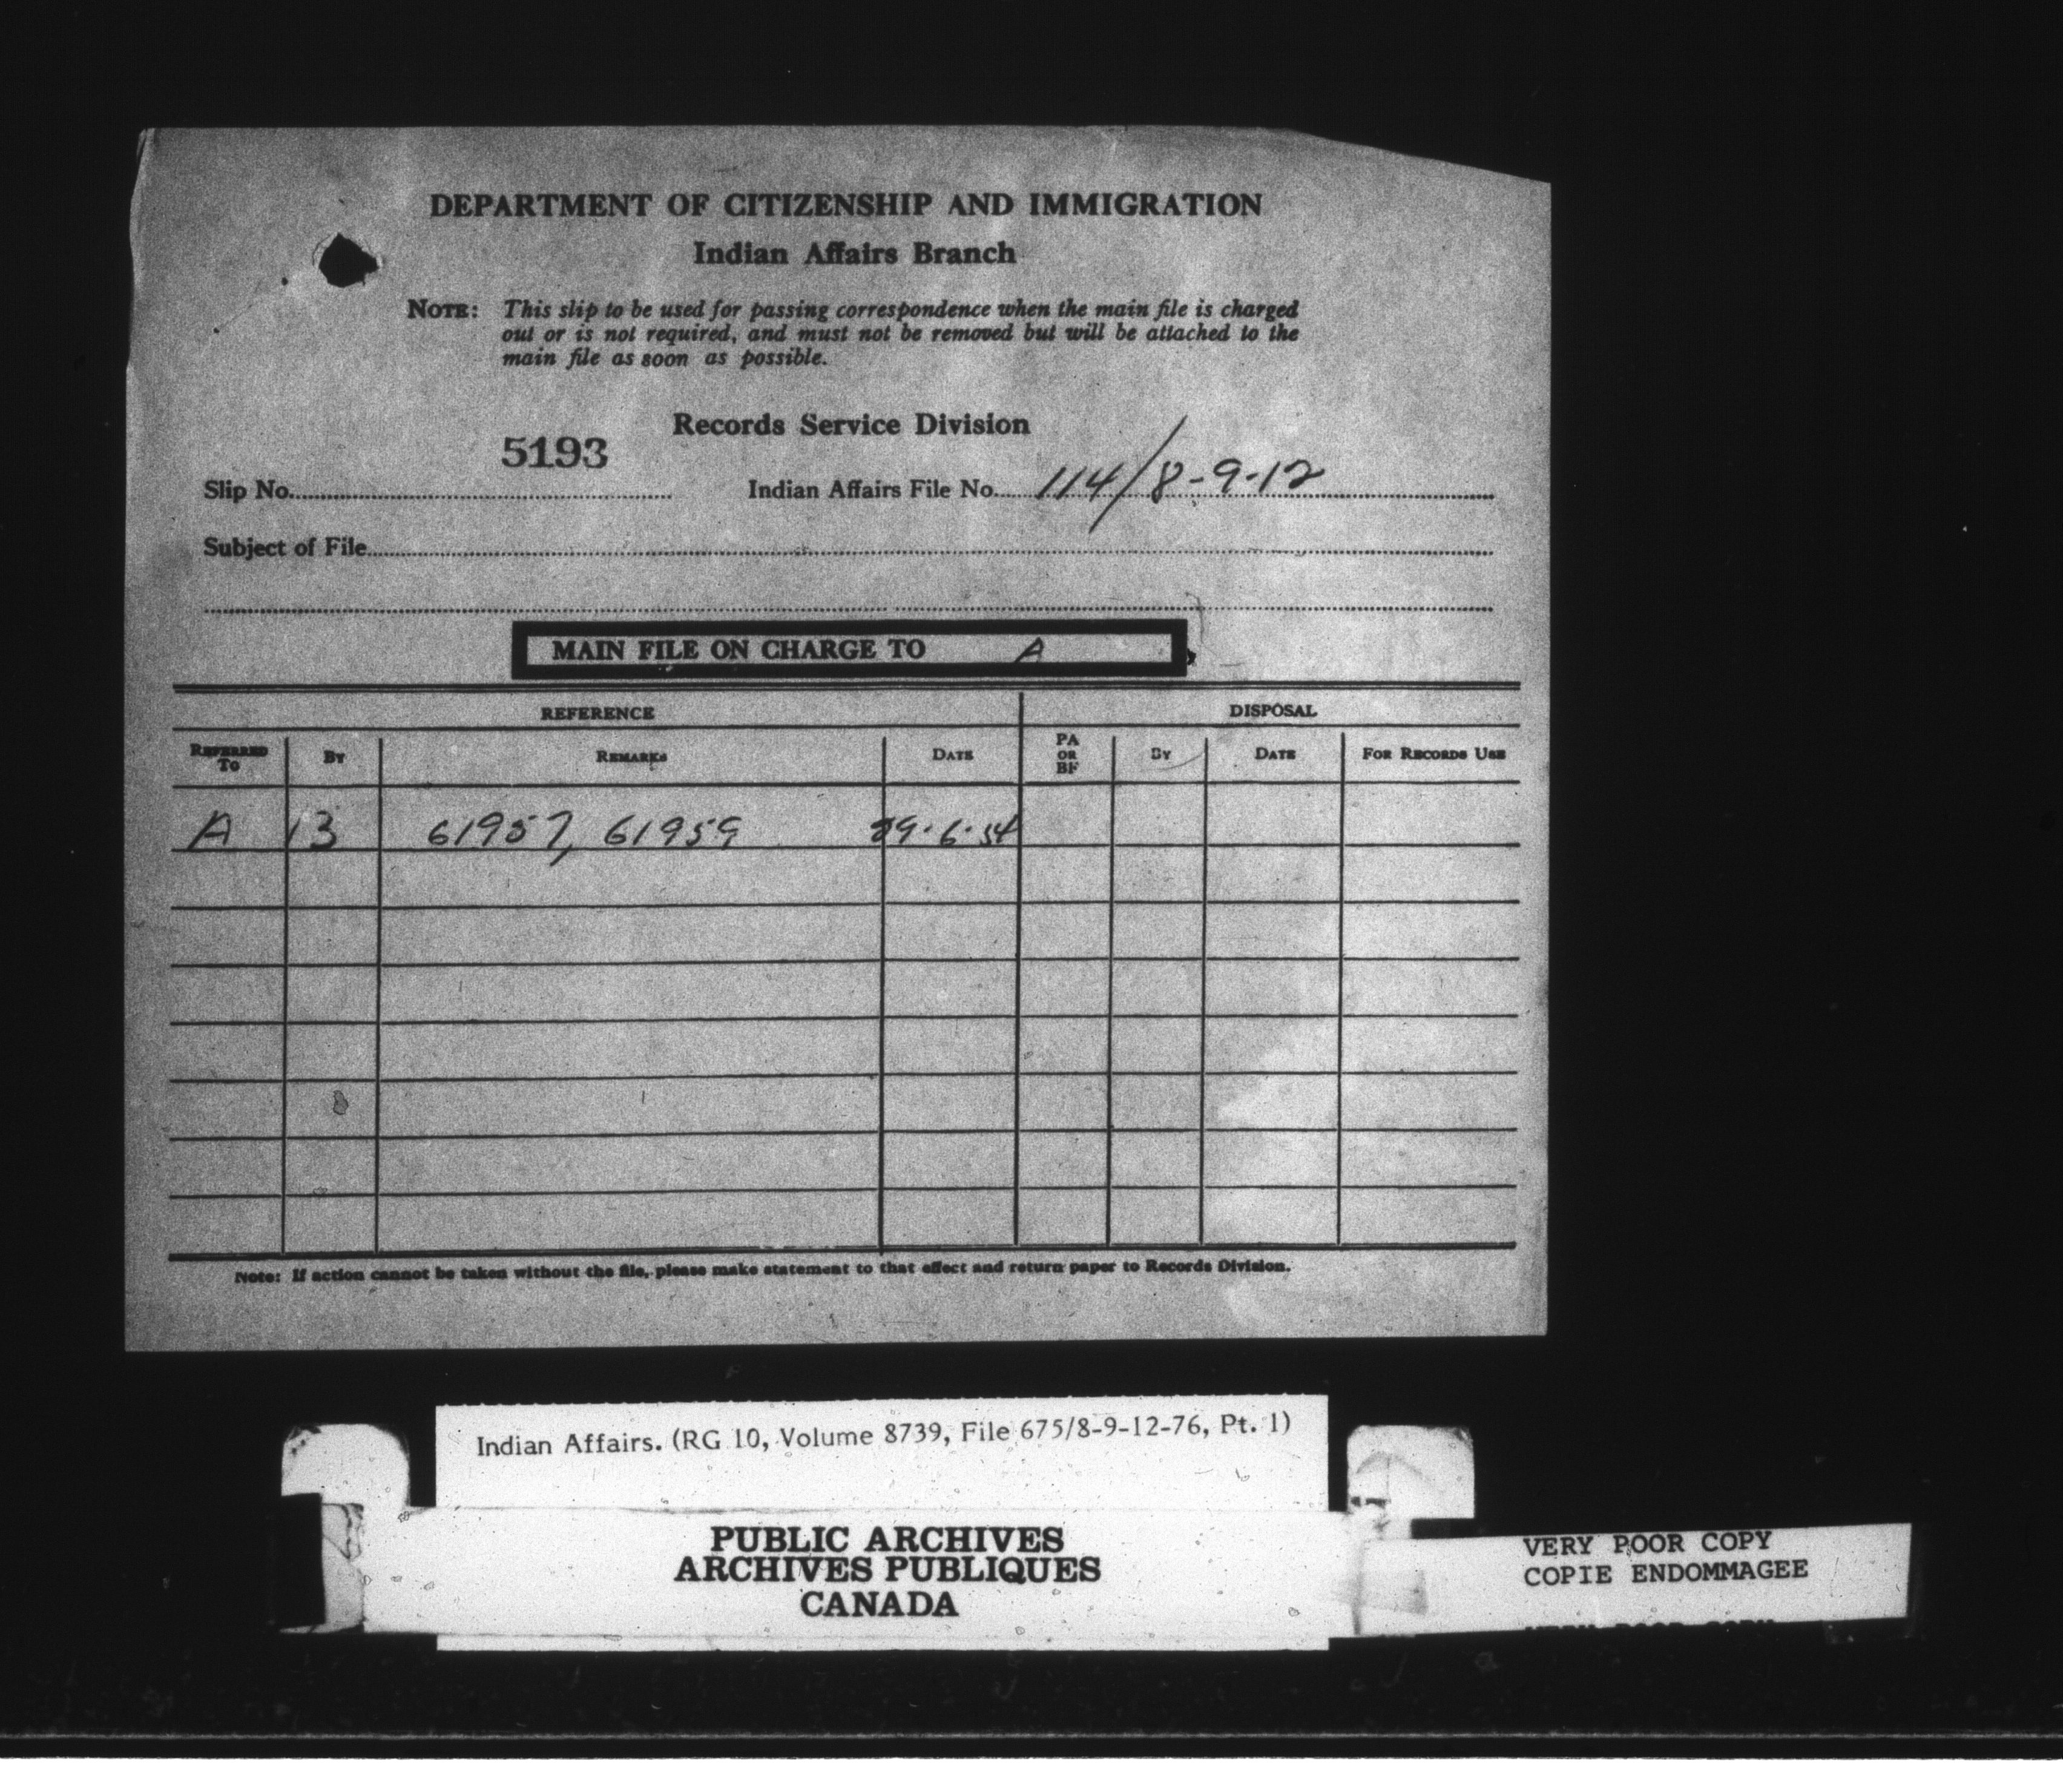 DEPARTMENT OF CITIZENSHIP AND IMMIGRATION
Indian Affairs Branch
NOTE: This slip to be used for passing correspondence when the main file is charged
out or is not required, and must not be removed but will be attached to the
main file as soon as possible.
Records Service Division
Slip No. 5193 Indian Affairs File No. 114/8-9-12
Subject of File
MAIN FILE ON CHARGE TO A
REFERENCE DISPOSAL
REFERRED TO BY REMARKS DATE PA OR BF BY DATE FOR RECORDS USE
A 13 61957, 61959 29.6.54
Note: If action cannot be taken without the file, please make statement to that effect and return paper to Records Division.
Indian Affairs. (RG 10, Volume 8739, File 675/8-9-12-76, Pt. 1)
PUBLIC ARCHIVES
ARCHIVES PUBLIQUES
CANADA
VERY POOR COPY
COPIE ENDOMMAGEE